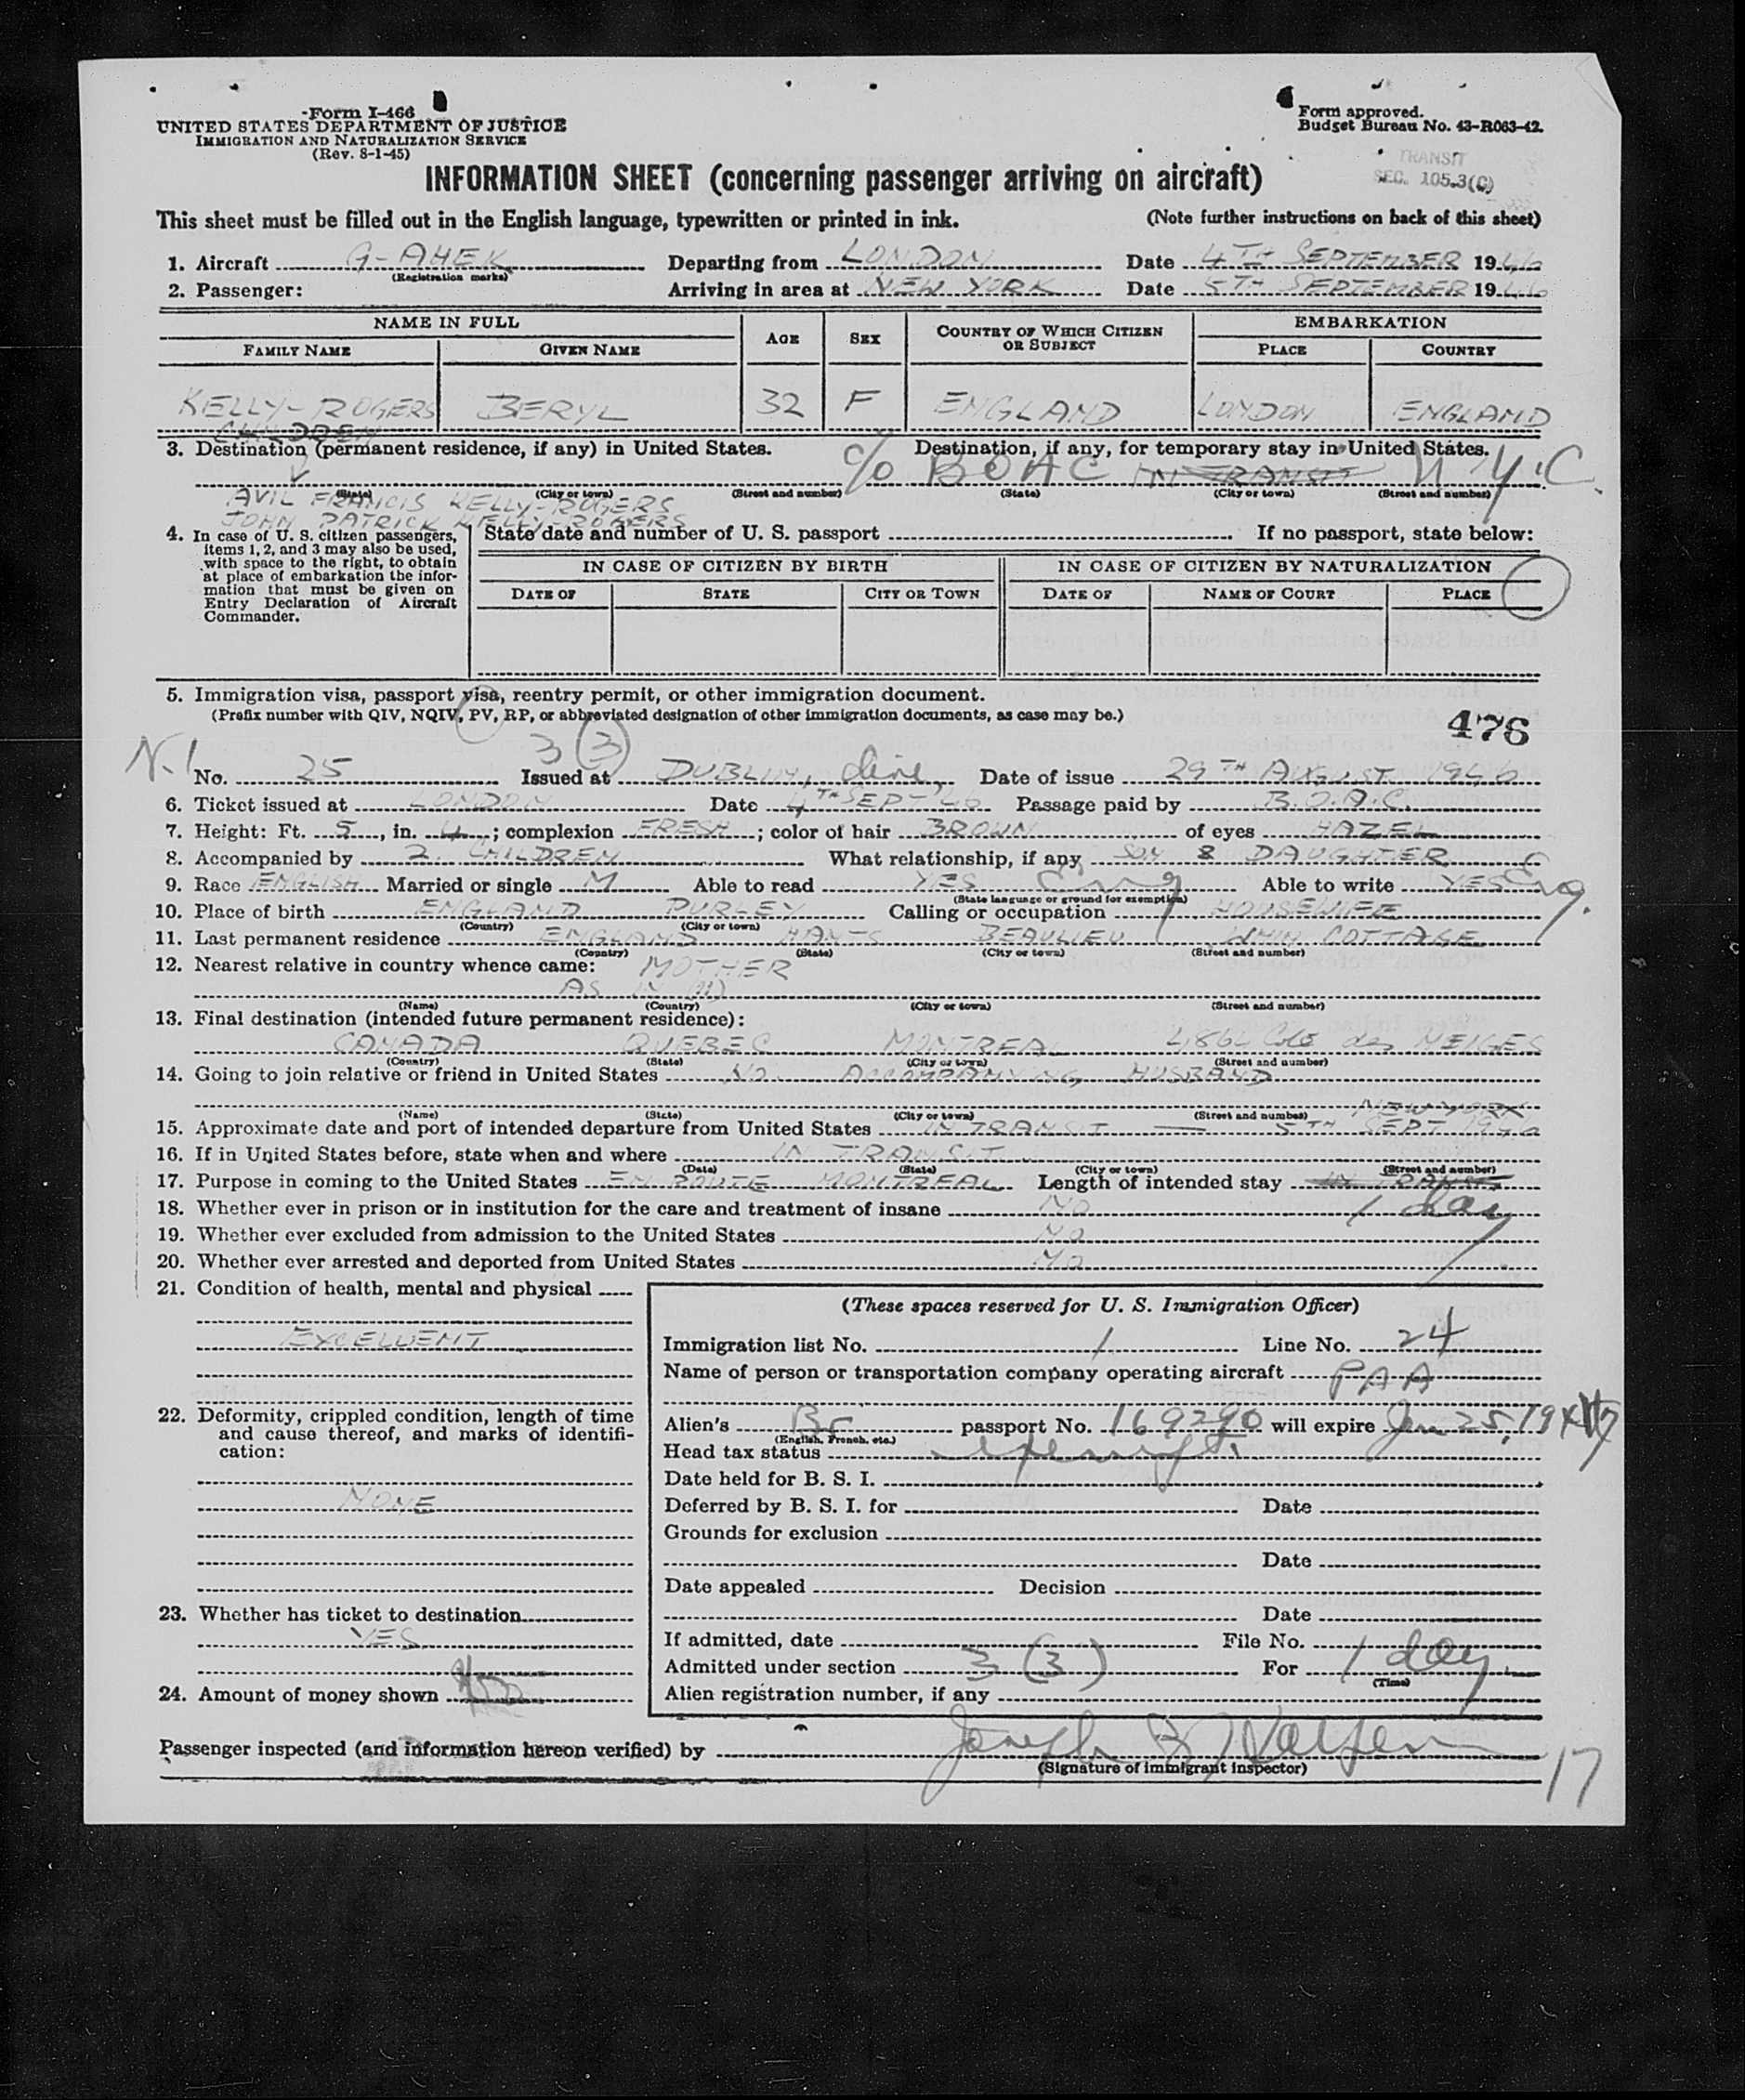 Form I-466
UNITED STATES DEPARTMENT OF JUSTICE
IMMIGRATION AND NATURALIZATION SERVICE
(Rev. 8-1-45)
Form approved.
Budget Bureau No. 43-R063-42.
TRANSIT
SEC. 105.3(C)
INFORMATION SHEET (concerning passenger arriving on aircraft)
This sheet must be filled out in the English language, typewritten or printed in ink. (Note further instructions on back of this sheet)
1. Aircraft G-AHEK Departing from LONDON Date 4TH SEPTEMBER 1946
(Registration marks)
2. Passenger: Arriving in area at NEW YORK Date 5TH SEPTEMBER 1946
NAME IN FULL AGE SEX COUNTRY OF WHICH CITIZEN OR SUBJECT EMBARKATION
FAMILY NAME GIVEN NAME PLACE COUNTRY
KELLY-ROGERS BERYL 32 F ENGLAND LONDON ENGLAND
CHILDREN
3. Destination (permanent residence, if any) in United States. Destination, if any, for temporary stay in United States.
c/o BOAC IN TRANSIT N.Y.C.
(State) (City or town) (Street and number) (State) (City or town) (Street and number)
AVIL FRANCIS KELLY-ROGERS
JOHN PATRICK KELLY-ROGERS
4. In case of U. S. citizen passengers, items 1, 2, and 3 may also be used, with space to the right, to obtain at place of embarkation the information that must be given on Entry Declaration of Aircraft Commander.
State date and number of U. S. passport If no passport, state below:
IN CASE OF CITIZEN BY BIRTH IN CASE OF CITIZEN BY NATURALIZATION
DATE OF STATE CITY OR TOWN DATE OF NAME OF COURT PLACE
5. Immigration visa, passport visa, reentry permit, or other immigration document.
(Prefix number with QIV, NQIV, PV, RP, or abbreviated designation of other immigration documents, as case may be.)
476
3 (3)
No. 25 Issued at DUBLIN, Eire, Date of issue 29TH AUGUST 1946
6. Ticket issued at LONDON Date 4TH SEPT '46 Passage paid by B.O.A.C.
7. Height: Ft. 5, in. 4; complexion FRESH; color of hair BROWN of eyes HAZEL
8. Accompanied by 2 CHILDREN What relationship, if any SON & DAUGHTER
9. Race ENGLISH Married or single M Able to read YES Eng Able to write YES Eng.
(State language or ground for exemption)
10. Place of birth ENGLAND PURLEY Calling or occupation HOUSEWIFE
(Country) (City or town)
11. Last permanent residence ENGLAND HANTS BEAULIEU WHIN COTTAGE
(Country) (State) (City or town) (Street and number)
12. Nearest relative in country whence came: MOTHER
AS IN (11)
(Name) (Country) (City or town) (Street and number)
13. Final destination (intended future permanent residence):
CANADA QUEBEC MONTREAL 4866 Cote des NEIGES
(Country) (State) (City or town) (Street and number)
14. Going to join relative or friend in United States NO. ACCOMPANYING HUSBAND
(Name) (State) (City or town) (Street and number)
NEW YORK
15. Approximate date and port of intended departure from United States IN TRANSIT — 5TH SEPT 1946
16. If in United States before, state when and where IN TRANSIT
(Date) (State) (City or town) (Street and number)
17. Purpose in coming to the United States EN ROUTE MONTREAL Length of intended stay IN TRANSIT
1 day
18. Whether ever in prison or in institution for the care and treatment of insane NO
19. Whether ever excluded from admission to the United States NO
20. Whether ever arrested and deported from United States NO
21. Condition of health, mental and physical
EXCELLENT
22. Deformity, crippled condition, length of time and cause thereof, and marks of identification:
NONE
23. Whether has ticket to destination
YES
24. Amount of money shown
(These spaces reserved for U. S. Immigration Officer)
Immigration list No. 1 Line No. 24
Name of person or transportation company operating aircraft PAA
Alien's Br passport No. 169290 will expire Jan 25, 19
(English, French, etc.)
Head tax status exempt
Date held for B. S. I.
Deferred by B. S. I. for Date
Grounds for exclusion
Date
Date appealed Decision
Date
If admitted, date File No.
Admitted under section 3 (3) For 1 day
(Time)
Alien registration number, if any
Passenger inspected (and information hereon verified) by Joseph B.
(Signature of immigrant inspector)
17